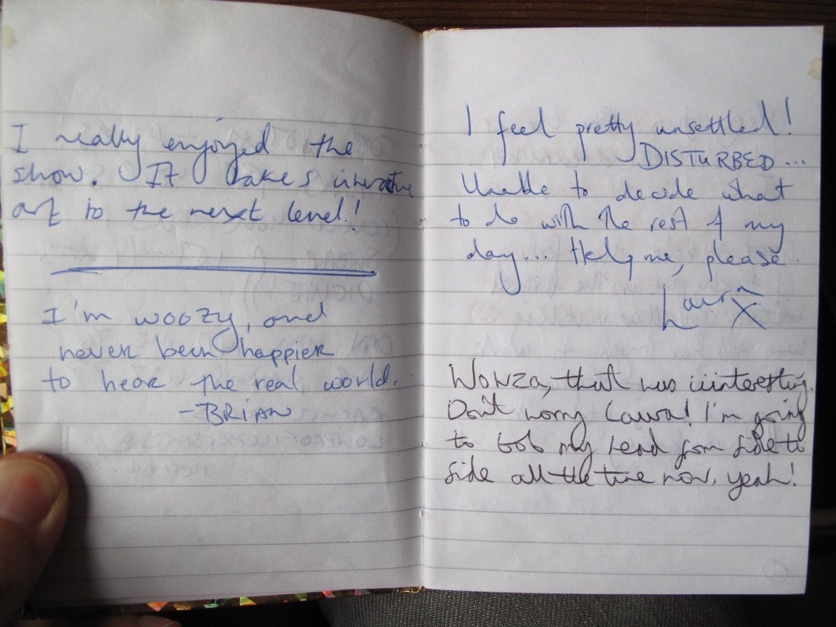 I really enjoyed the
show. It takes interactive
art to the next level!
I'm woozy, and
never been happier
to hear the real world.
-BRIAN
I feel pretty unsettled!
DISTURBED...
Unable to decide what
to do with the rest of my
day... Help me, please.
Laura X
WOWZA, that was interesting.
Don't worry Laura! I'm going
to bob my head from side to
side all the time now, yeah!